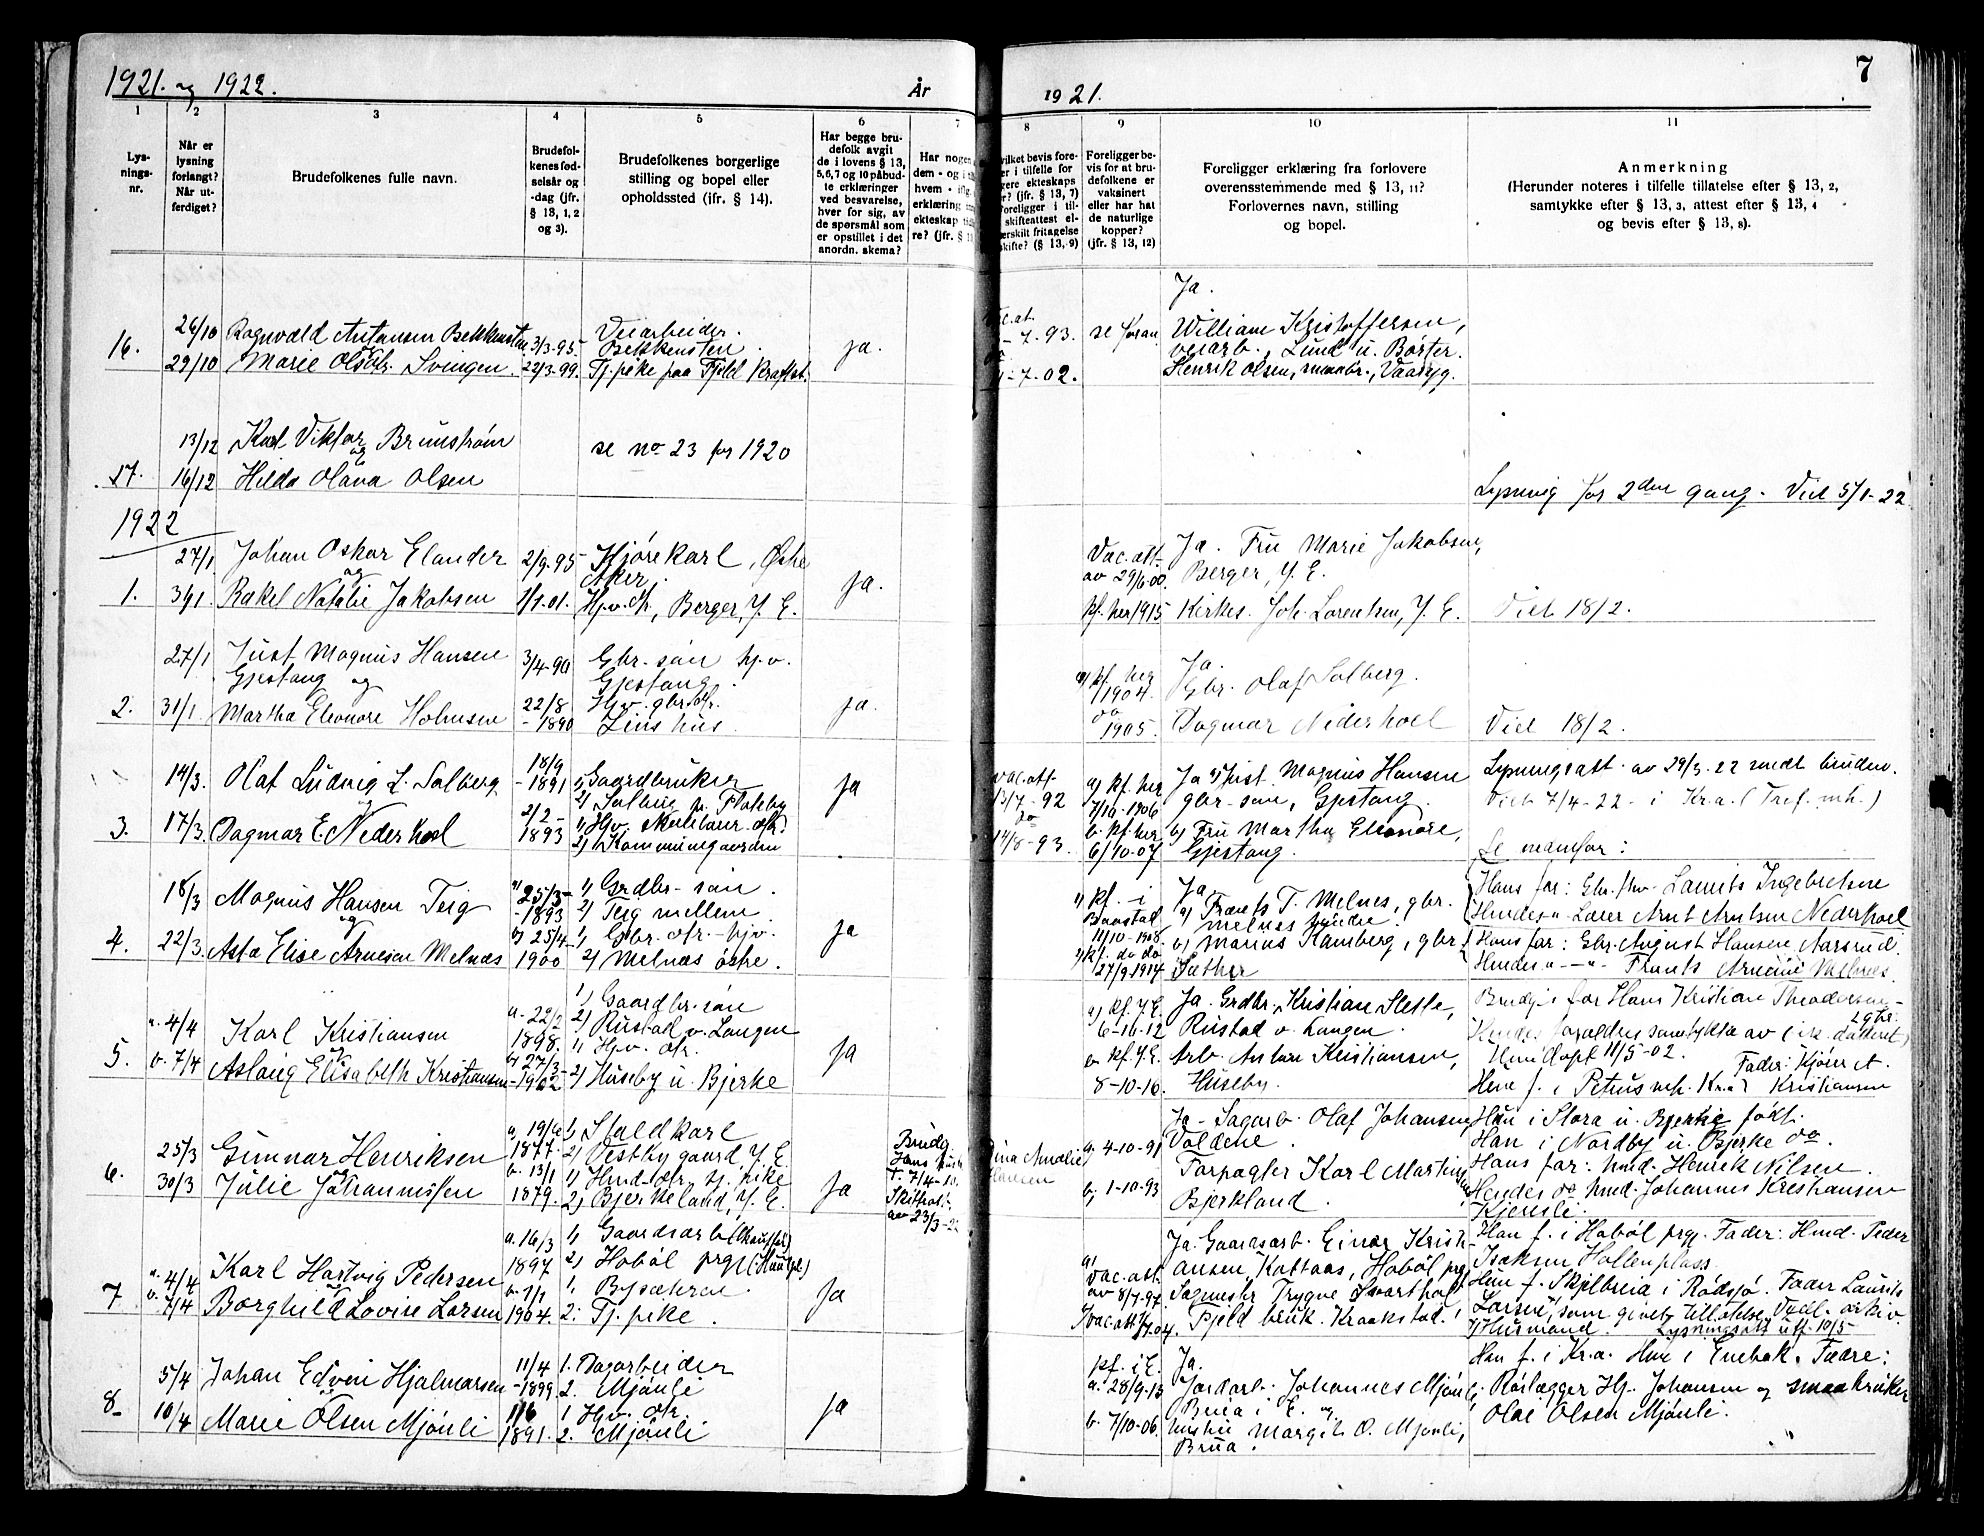 1921. og 1922.
År
1921.
7
1
2
3
4
5
6
7
8
9
10
11
Lys-
nings-
nr.
Når er
lysning
forlangt?
Når ut-
ferdiget?
Brudefolkenes fulle navn.
Brudefol-
kenes fød-
selsår og
-dag (jfr.
§ 13, 1, 2
og 3).
Brudefolkenes borgerlige
stilling og bopel eller
opholdssted (jfr. § 14).
Har begge bru-
defolk avgit
de i lovens § 13,
5,6,7 og 10 påbud-
te erklæringer
ved besvarelse,
hver for sig, av
de spørsmål som
er opstillet i det
anordn. skema?
Har nogen
dem - og i
hvem - ifl.
erklæring
ekteskap
re? (jfr. §
vilket bevis fore-
er i tilfelle for
gere ekteskaps
r? (jfr. § 13, 7)
Foreligger i til-
skifteattest el-
erskilt fritagelse
skifte? (§ 13, 9)
Foreligger be-
vis for at bru-
defolkene er
vaksinert
eller har hat
de naturlige
kopper?
(jfr. § 13, 12)
Foreligger erklæring fra forlovere
overensstemmende med § 13, 11?
Forlovernes navn, stilling
og bopel.
Anmerkning
(Herunder noteres i tilfelle tillatelse efter § 13, 2,
samtykke efter § 13, 3, attest efter § 13, 4
og bevis efter § 13, 8).
16.
26/10
29/10
Ragnvald Antonsen Bekkensten
Marie Olsdtr. Svingen.
3/3-95
22/3-99.
Veiarbeider.
Bekkensten.
Tj. pike paa Fjeld Kraftst.
ja.
-7.93.
-7-02.
se foran
Ja.
William Kristoffersen,
veiarb., Lund u. Børter.
Henrik Olsen, smaabr.,
17.
13/12
16/12
Karl Viktor Brunstrøm
og
Hilda Olava Olsen
se no 23 for 1920
Lysning for 2den gang. Viel 5/1-22
1922
1.
27/1
31/1
Johan Oskar Elander
og
Rakel Natalie Jakobsen
2/9-95
1/1.01.
Kjørekarl, Østre
Aker.
Hj.v. dtr., Berger, Y. E.
ja.
Vac. att.
av 29/6.00.
kf. her 1915
Ja. Fru Marie Jakobsen,
Berger, Y. E.
Kirkes. Joh. Lorentsen, Y. E.
Viel 18/2.
2.
27/1
31/1
Just Magnus Hansen
Gjestang og
Martha Eleonore Holmsen
3/4-90
22/8
-1890
Gbr. søn hj.v.
Gjestang.
Hj.v. gbr. dtr.
ja.
kf. her
1904.
do
1905.
Ja.
Gbr. Olaf Solberg.
Dagmar Nederhoel
Viel 18/2.
3.
14/3.
17/3.
Olaf Ludvig L. Solberg
og
Dagmar E. Nederhoel
18/9
-1891
2/2-
1893
1) Gaardbruker
2) Solberg p. Flateby
1) Hj.v. dtr.
2) Kommunegaarden
Ja
vac. att.
13/7-92
do
14/8-93.
a) kf. her
7/10-1906
b. kf. her
6/10-07
Ja a) Just Magnus Hansen
gbr-søn, Gjestang.
b) Fru Martha Eleonore,
Gjestang.
Lysningsatt. av 29/3.22 sendt bruden.
Viel 7/4-22 - i Kr.a. (Tref. mh.)
Se nedenfor:
4.
18/3
22/3.
Magnus Hansen Teig
og
Asta Elise Arnesen Melnæs
a) 25/3-
-1893
b) 25/4-
1900
1) Grdbr-søn.
2) Teig mellem.
1) Gbr. dtr. hjv.
2) Melnæs østre.
ja
1) kf. i
Baastad
11/10-1908
2) kf. do do
27/9 1914
Ja
a) Frants T. Melnes, gbr.
Melnes søndre.
b) Marius Hamberg, gbr.
Sæther
Hans far: Gbr. fhv. Laurits Ingebretsen
Hendes " Lærer Arnt Arntsen Nederhoel
Hans far: Gbr. August Hansen Aarsrud
Hendes " - " - Frants Arnesen Melnæs
5.
a. 4/4
b. 7/4
Karl Kristiansen
og
Aslaug Elisabeth Kristiansen
a. 22/2
1898.
b) 27/3-
-1902
1) Gaardbr. søn
2) Rustad v. Langen
1) Hj.v. dtr.
2) Huseby u. Bjerke
Ja
a) kf. Y.E.
6-10-12
b. kf. Y.E.
8-10-16.
Ja. Grdbr. Kristian Slette,
Rustad v. Langen.
Arb. Anton Kristiansen,
Huseby.
Brudg.'s far Hans Kristian Theodorsen
Hendes forældres samtykke av (ikke dateret)
Hun døpt 11/5-02. Fader: Kjører A.
Hun f. i Petrus mh. Kr.a. Kristiansen
6.
25/3
30/3
Gunnar Henriksen
og
Julie Johannessen
a. 19/6
1877.
b. 13/1
1879.
1) Staldkarl
2) Vestby gaard, Y. E.
1) Hmd-dtr. tj. pike
2) Bjerkeland, Y. E.
ja
Brudg.
Skifteatt.
av 23/3-22
Amalie
Hansen
a. 4-10-91
b) 1-10-93
Ja - Sagarb. Olaf Johansen,
Voldene.
Forpagter Karl Martinsen
Bjerkland.
Hun i Stora u. Bjerke født.
Han i Nordby u. Bjerke do.
Hans far: hmd. Henrik Nilsen.
Hendes do hmd. Johannes Kristiansen
Kjensli.
7
a. 4/4
b. 7/4
Karl Hartvig Pedersen
og
Borghild Lovise Larsen
a. 16/3
1897
b. 1/1
1904.
1) Gaardsarb. (Chauffør)
2) Hobøl prgj.
1.
2: Tj. pike.
Ja
a)
Vac. att.
av 8/7.97.
Vac. att.
Ja. Gaardsarb. Einar Krist-
iansen, Kottaas, Hobøl prg.
Sagmester Trygve Svarthol
Fjeld bruk. Kraakstad.
Han f. i Hobøl prgj. Fader: Hmd. Peder
Isaksen Hollenplass.
Hun f. Skjelbreia i Rødsjø. Fader Laurits
Larsen, som givet tillatelse. Vedl. arkiv.
Husmand. Lysningsatt. utf. 10/5
8
5/4
10/4
Johan Edvin Hjalmarsen
og
Marie Olsen Mjønli
11/4
-1899
11/6
1891.
1. Dagarbeider
2. Mjønli
1. Hj.v. dtr.
2. Mjønli
ja
kf. i E.
a. 28/9.13
b. 7/10-06.
Ja.
Jordarb. Johannes Mjønli,
Brua i E. og
hustru Margit O. Mjønli,
Brua.
Han f. i Kr.a. Hun i Enebak. Fædre:
Rørlægger Hj. Johansen og smaabruker
Olai Olsen Mjønli.